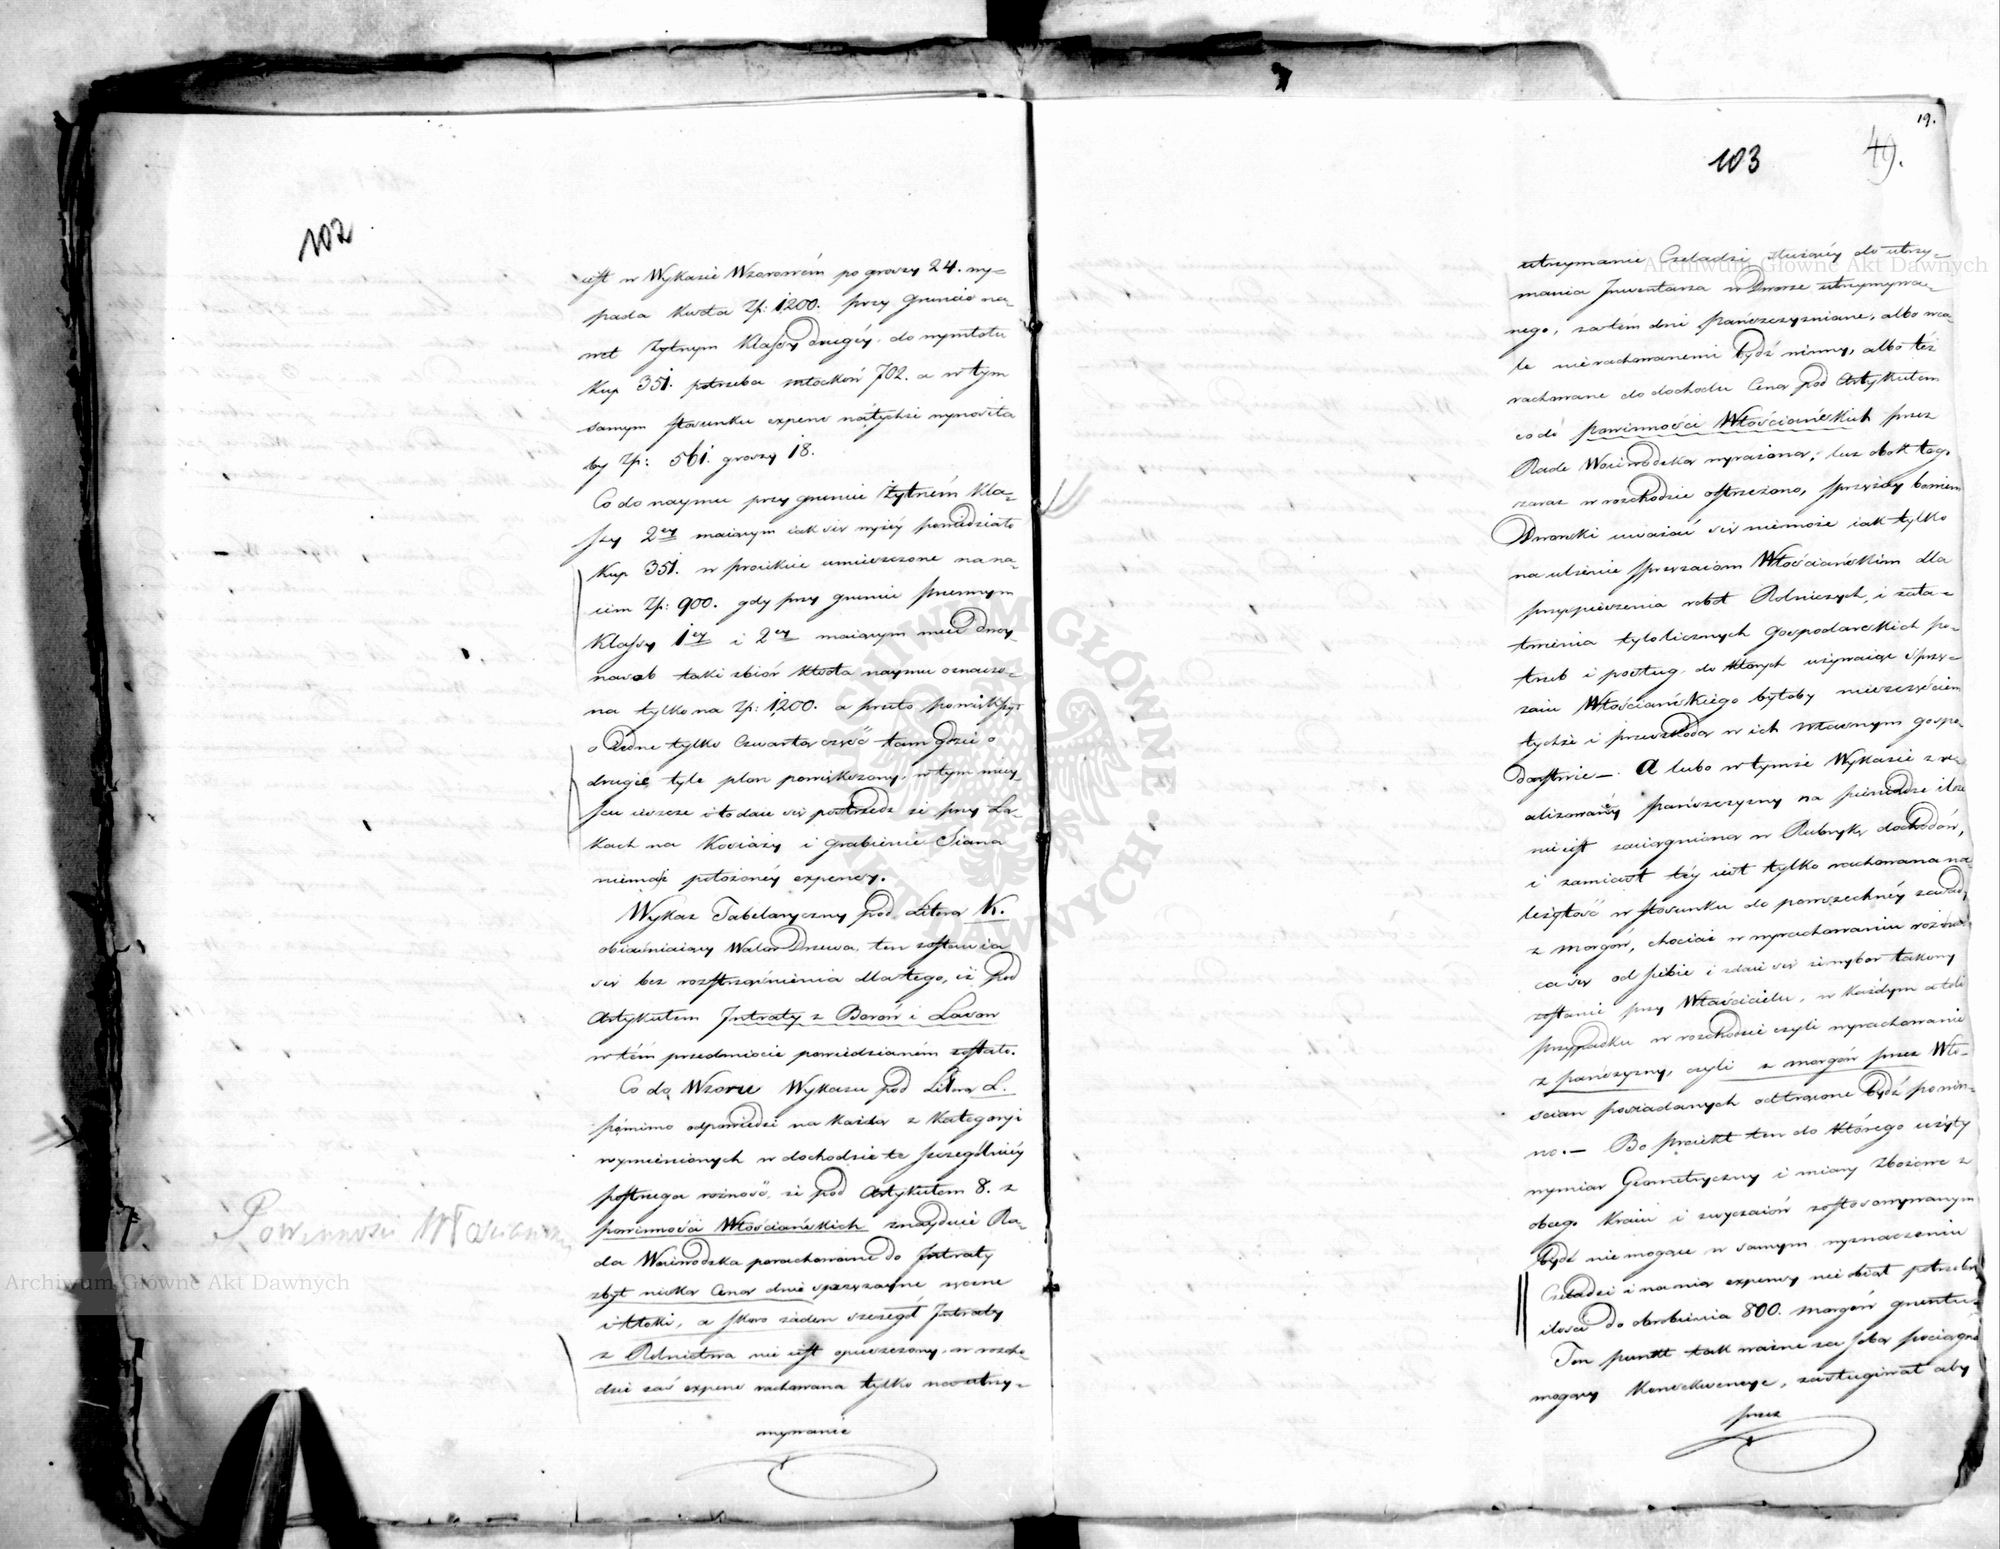 102
iest w Wykazie Wzorowém po groszy 24. wy-
pada kwota Zp: 1200. przy gruncie na-
wet Żytnym Klassy drugiéy, do wymłotu
Kup 351. potrzeba młocków 702. a w tym
samym stosunku expens natychże wynosiła
by Zp: 561. groszy 18.
Co do naymu przy gruncie Żytném Kla-
ssy 2ey maiącym iak się wyżéy powiedziało
Kup 351. w proiekcie umieszczone na na-
iem Zp: 900. gdy przy gruncie pszennym
Klassy 1ey i 2ey maiącym mieć dwoy-
nasob taki zbiór kwota naymu oznaczo-
na tylko na Zp: 1200. a przeto powiększa
o iedne tylko czwartą część tam gdzie o
drugie tyle plon powiększony, w tym miey-
scu ieszcze i to daie się postrzedz że przy Łą-
kach na Kosiarzy i grabienie Siana
niemasz położonéy expensy.
Wykaz Tabelaryczny pod Literą K.
obiaśniaiący Walor Drzewa, ten zostawia
się bez rozstrząśnienia dlatego, iż pod
Artykułem Intraty z Borów i Lasow
w tém przedmiocie powiedzianém zostało.
Co do Wzoru Wykazu pod Literą L.
pomimo odpowiedzi na każdą z Kategoryi
wymienionych w dochodzie te szczególniéy
postrzega rożność, że pod Artykułem 8. z
powinności Włościańskich znayduie Ra-
da Woiewodzka porachowane do Intraty
zbyt niską Cenę dnie sprzężayne ręczne
i tłoki, a skoro żaden szczegół Intraty
z Rolnictwa nie iest opuszczony, w rozcho-
dzie zaś expens rachowana tylko na utrzy-
mywanie
7. Powinności Włosciańskie
19.
103
49.
utrzymanie Czeladzi służącéy do utrzy-
mania Inwentarza w Dworze utrzymywa-
nego, zatém dni pańszczyzniane, albo wca-
le nierachowanemi bydź winny, albo też
rachowane do dochodu Ceną pod Artykułem
co do powinności Włościańskich przez
Radę Woiewodzką wyrażoną, lecz obok tego
zaraz w rozchodzie ostrzeżono, sprzężay bowiem
Dworski uważać się niemoże iak tylko
na ulżenie sprzężaiom Włościańskim dla
przyspieszenia robot Rolniczych, i zała-
twienia tyloliicznych gospodarskich po-
trzeb i posług, do których używaiąc sprzę-
żaiu Włościańskiego byłoby nieszczęściem
tychże i przeszkodą w ich własnym gospo-
darstwie —. A lubo w tymże Wykazie z re-
alizowanéy pańszczyzny na pieniądze ilość
nie iest zaciągniona w Rubrykę dochodów,
i zamiast téy iest tylko rachowana na-
leżytość w stosunku do powszechnéy zasady
z morgów, chociaż w wyrachowaniu rożnią-
ca się od siebie i zdaie się że wybor takowy
zostanie przy Właścicielu, w każdym atoli
przypadku w rozchodzie czyli wyrachowanie
z pańszczyzny, czyli z morgów przez Wło-
ścian posiadanych odtrącone bydź powin-
no. — Bo proiekt ten do którego użyty
wymiar Geometryczny i miary Zbożowe z
obcego Kraiu i zwyczaiów zastosowywanym
bydź niemogące w samym wyznaczeniu
Czeladzi i na nią expensy nie obiął potrzebnéy
ilości do obrobienia 800. morgów gruntu.
Ten punkt tak ważne za sobą pociągnąć
mogący konsekwencye, zasługiwał aby
przez
Archiwum Główne Akt Dawnych
Archiwum Główne Akt Dawnych
ARCHIWUM GŁÓWNE AKT DAWNYCH